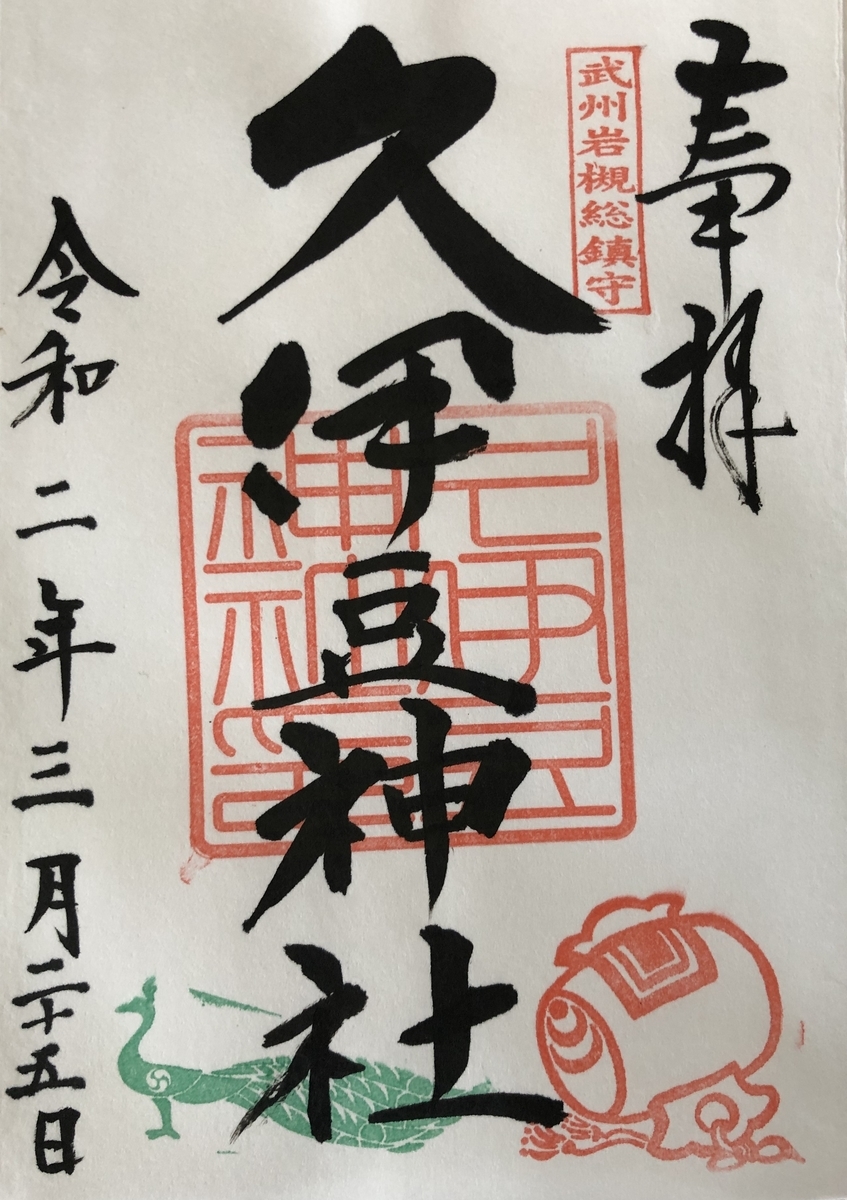 奉拝
武州岩槻総鎮守
久伊豆神社
令和二年三月二十五日